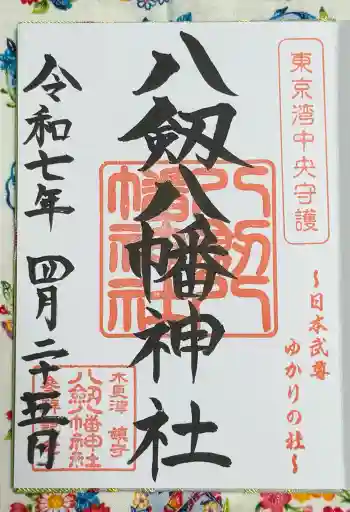 東京湾中央守護
～日本武尊
ゆかりの社～
八劔八幡神社
八劔
八幡神社
木更津 鎮守
八劔八幡神社
令和七年 四月二十五日